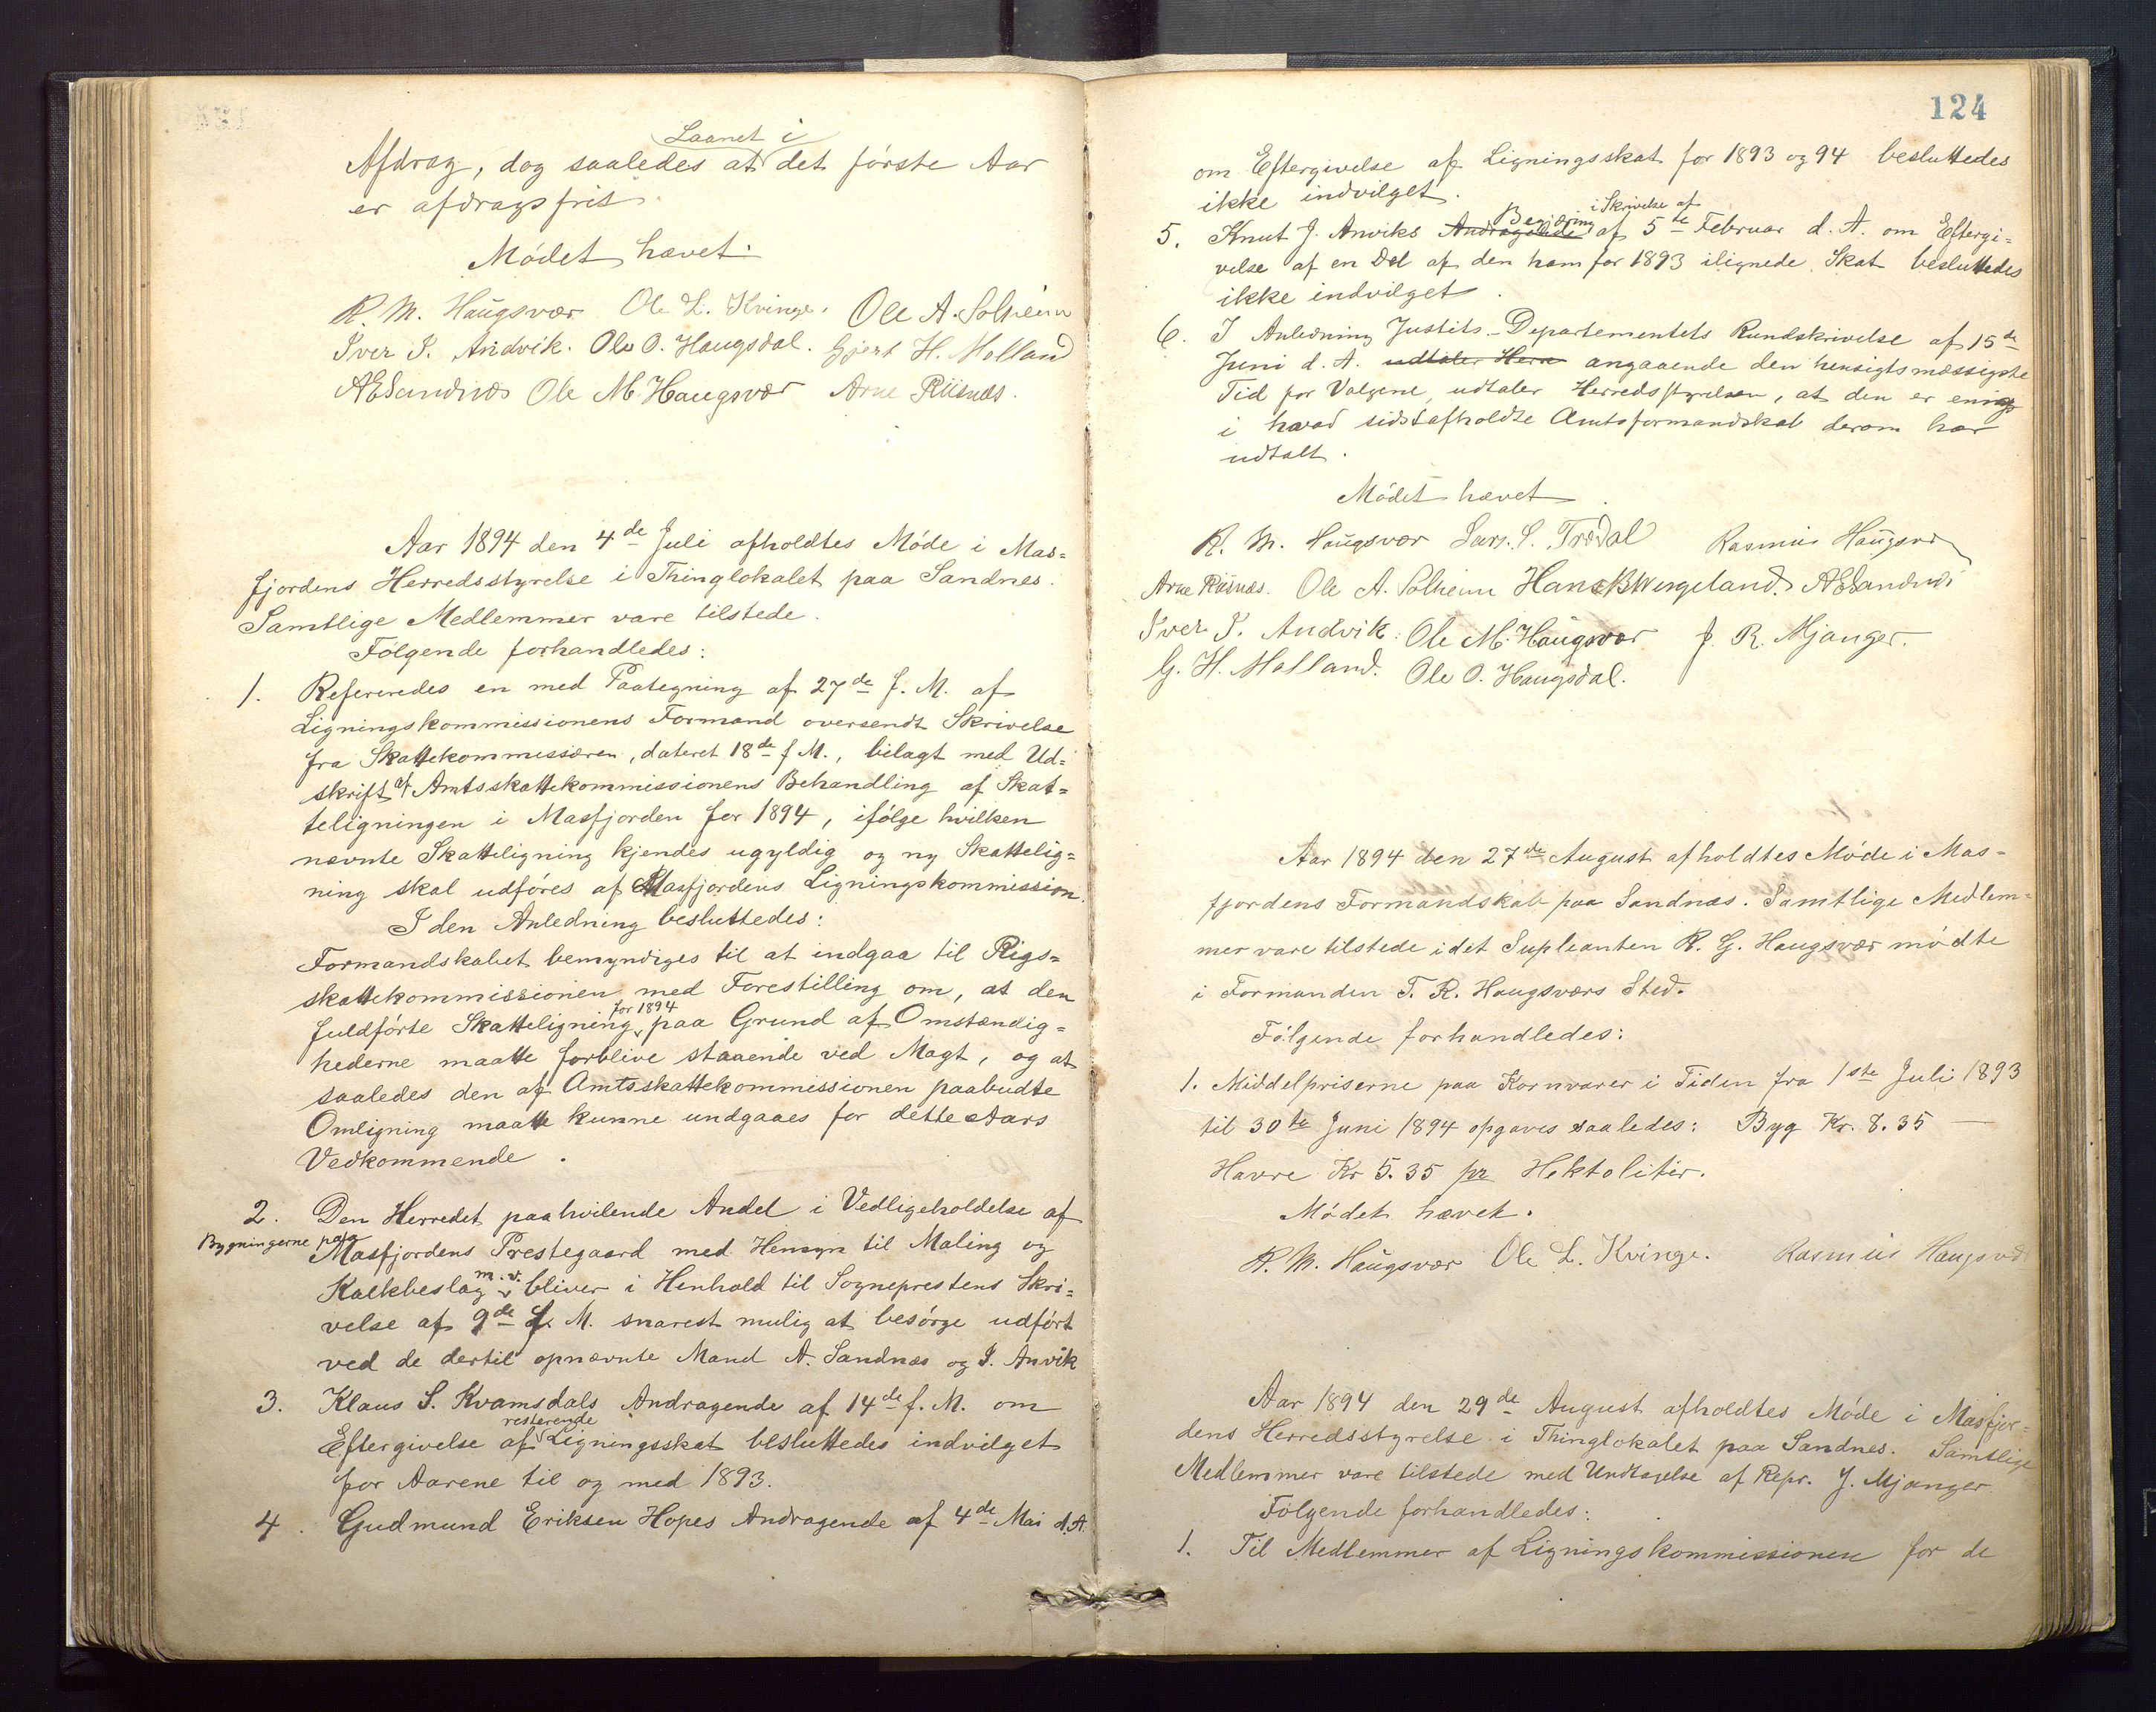 Laanet i
Afdrag, dog saaledes at det første Aar
er afdragsfrit.
Mødet hævet.
R. M. Haugsvær Ole L. Kvinge. Ole A. Solheim
Iver P. Andvik. Ole O. Haugsdal. Gjert H. Molland
AESandnæs Ole M Haugsvær Arne Riisnæs.
Aar 1894 den 4de Juli afholdtes Møde i Mas=
fjordens Herredsstyrelse i Thinglokalet paa Sandnes.
Samtlige Medlemmer vare tilstede.
Følgende forhandledes:
1. Refereredes en med Paategning af 27de f. M. af
Ligningskommissionens Formand oversendt Skrivelse
fra Skattekommissæren, dateret 18de f M., bilagt med Ud=
skrift af Amtsskattekommissionens Behandling af Skat=
teligningen i Masfjorden for 1894, ifølge hvilken
nævnte Skatteligning kjendes ugyldig og ny Skattelig=
ning skal udføres af Masfjordens Ligningskommission.
I den Anledning besluttedes:
Formandskabet bemyndiges til at indgaa til Rigs=
skattekommissionen med Forestilling om, at den
for 1894
fuldførte Skatteligning paa Grund af Omstændig=
hederne maatte forblive staaende ved Magt, og at
saaledes den af Amtsskattekommissionen paabudte
Omligning maatte kunne undgaaes for dette Aars
Vedkommende.
2. Den Herredet paahvilende Andel i Vedligeholdelse af
Bygningerne paa
Masfjordens Prestegaard med Hensyn til Maling og
m. v.
Kalkbeslag bliver i Henhold til Sogneprestens Skri=
velse af 9de f. M. snarest mulig at besørge udført
ved de dertil opnævnte Mand A. Sandnæs og I. Anvik
3. Klaus S. Kvamsdals Andragende af 14de f. M. om
resterende
Eftergivelse af Ligningsskat besluttedes indvilget
for Aarene til og med 1893.
4. Gudmund Eriksen Hopes Andragende af 4de Mai d.A.
124
om Eftergivelse af Ligningsskat for 1893 og 94 besluttedes
ikke indvilget.
Begjæring i Skrivelse af
5. Knut J. Anviks Andragende af 5te Februar d. A. om Eftergi=
velse af en Del af den ham for 1893 ilignede Skat besluttedes
ikke indvilget.
6. I Anledning Justits-Departementets Rundskrivelse af 15de
Juni d. A. udtaler Herre angaaende den hensigtsmæssigste
Tid for Valgene, udtaler Herredsstyrelsen, at den er enig
i hvad sidstafholdte Amtsformandskab derom har
udtalt.
Mødet hævet.
R. M. Haugsvær Lars. S. Trædal Rasmus Haugsvær
Arne Riisnæs. Ole A. Solheim Hans B Wergeland. AESandnæs
Iver P. Andvik. Ole M. Haugsvær J. R. Mjanger.
G. H. Molland. Ole O. Haugsdal.
Aar 1894 den 27de August afholdtes Møde i Mas-
fjordens Formandskab paa Sandnæs. Samtlige Medlem=
mer vare tilstede idet Supleanten R. G. Haugsvær mødte
i Formanden T. R. Haugsværs Sted.
Følgende forhandledes:
1. Middelpriserne paa Kornvarer i Tiden fra 1ste Juli 1893
til 30te Juni 1894 opgaves saaledes: Byg Kr. 8.35 —
Havre Kr 5.35 pr Hektoliter.
Mødet hævet.
R. M. Haugsvær Ole L. Kvinge. Rasmus Haugsvær
Aar 1894 den 29de August afholdtes Møde i Masfjor=
dens Herredsstyrelse i Thinglokalet paa Sandnes. Samtlige
Medlemmer vare tilstede med Undtagelse af Repr. J. Mjanger
Følgende forhandledes:
1. Til Medlemmer af Ligningskommissionen for de